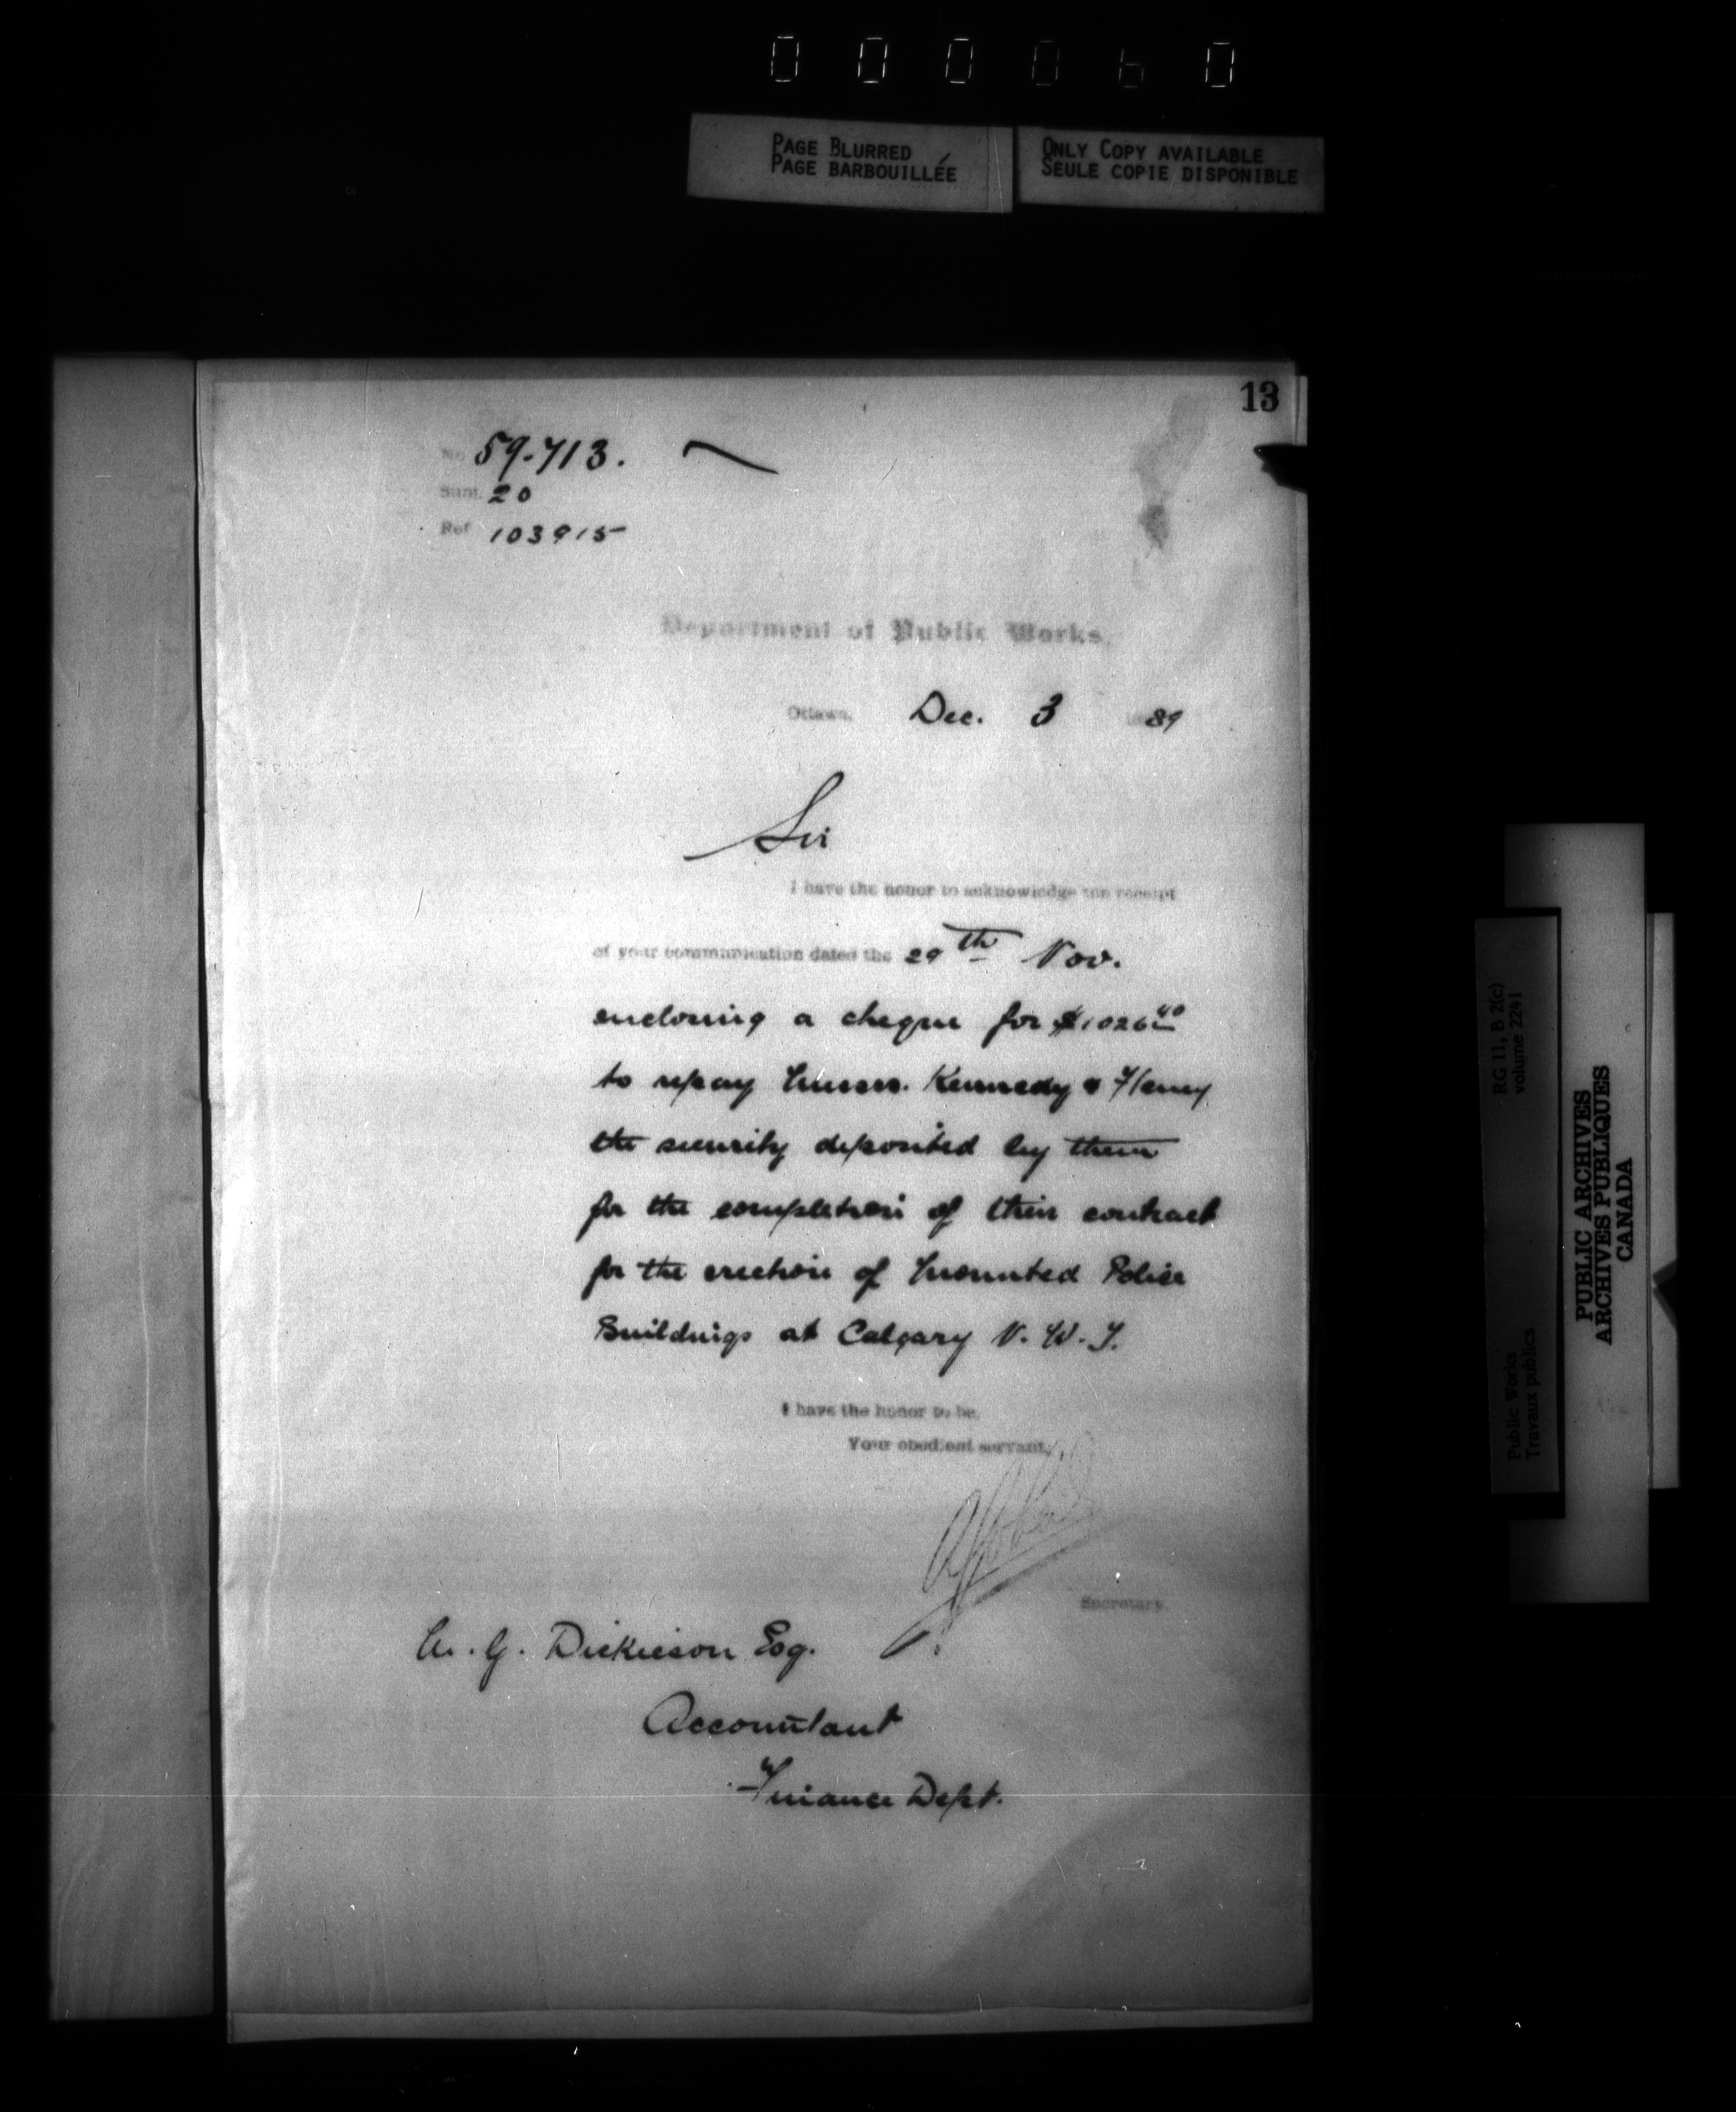 000060
PAGE BLURRED
PAGE BARBOUILLÉE
ONLY COPY AVAILABLE
SEULE COPIE DISPONIBLE
13
No 59.713.
Subj. 20
Ref 103915
Department of Public Works.
Ottawa, Dec. 3 1889
Sir
I have the honor to acknowledge the receipt
of your communication dated the 29th Nov.
enclosing a cheque for $1026 40
to repay Messrs. Kennedy &
the security deposited by them
for the completion of their contract
for the erection of Mounted Police
Buildings at Calgary N. W. T.
I have the honor to be,
Your obedient servant,
Secretary.
W. G. Dickieson Esq.
Accountant
Finance Dept.
RG 11, B 2(c)
volume 2241
Public Works
Travaux publics
PUBLIC ARCHIVES
ARCHIVES PUBLIQUES
CANADA